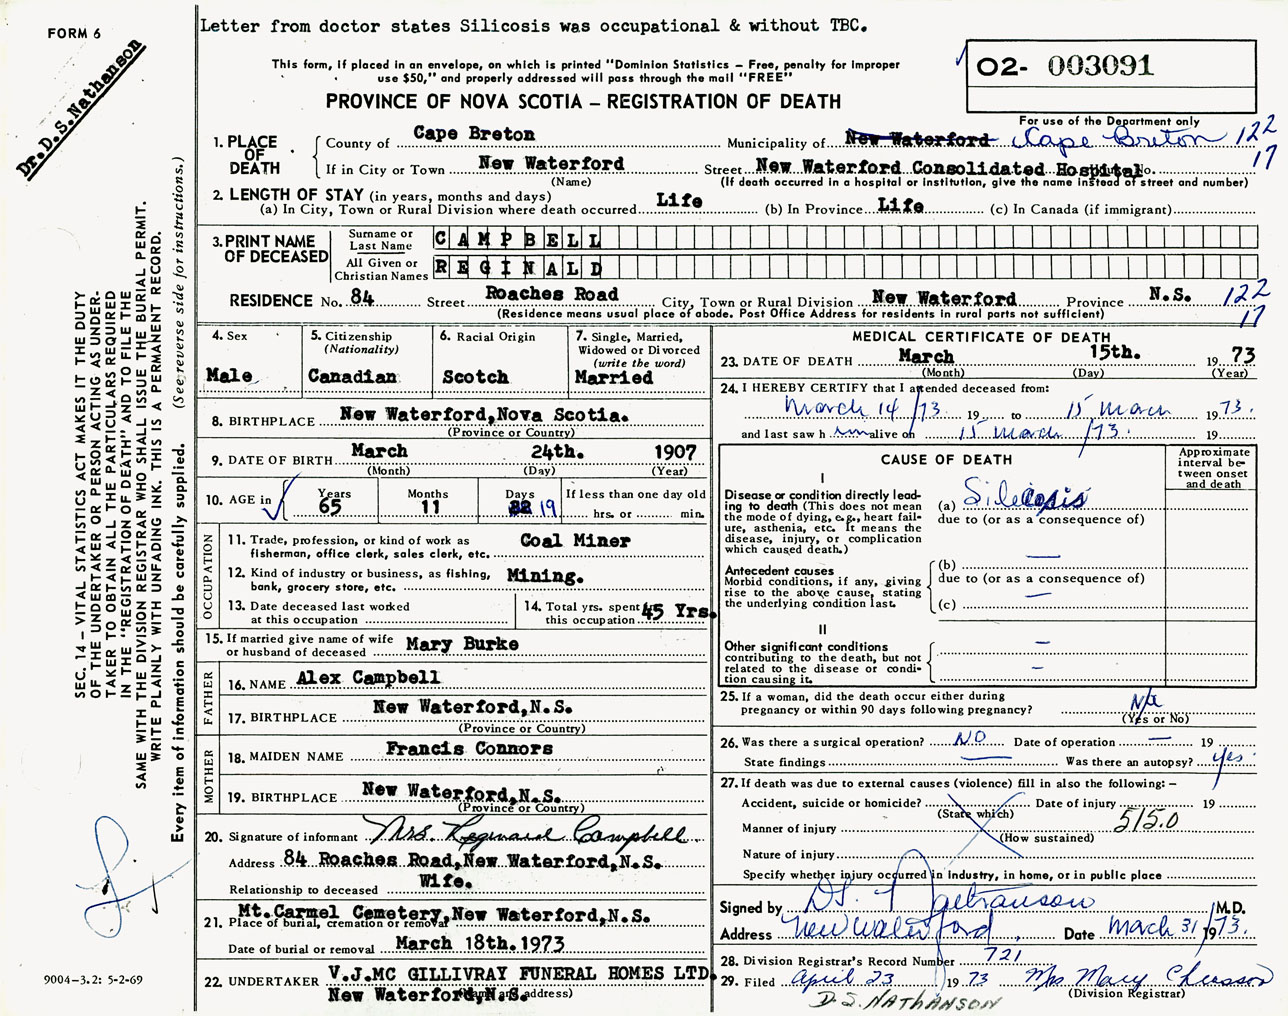 Letter from doctor states Silicosis was occupational & without TBC.
FORM 6
Dr. D. S. Nathanson
This form, if placed in an envelope, on which is printed "Dominion Statistics – Free, penalty for improper
use $50," and properly addressed will pass through the mail "FREE"
PROVINCE OF NOVA SCOTIA – REGISTRATION OF DEATH
02- 003091
For use of the Department only
1. PLACE OF DEATH
County of Cape Breton Municipality of New Waterford Cape Breton 122
If in City or Town New Waterford Street New Waterford Consolidated Hospital No. 17
(Name) (If death occurred in a hospital or institution, give the name instead of street and number)
2. LENGTH OF STAY (in years, months and days)
(a) In City, Town or Rural Division where death occurred Life (b) In Province Life (c) In Canada (if immigrant)
3. PRINT NAME OF DECEASED
Surname or Last Name CAMPBELL
All Given or Christian Names REGINALD
RESIDENCE No. 84 Street Roaches Road City, Town or Rural Division New Waterford Province N.S. 122
(Residence means usual place of abode. Post Office Address for residents in rural parts not sufficient) 17
4. Sex Male
5. Citizenship (Nationality) Canadian
6. Racial Origin Scotch
7. Single, Married, Widowed or Divorced (write the word) Married
8. BIRTHPLACE New Waterford, Nova Scotia.
(Province or Country)
9. DATE OF BIRTH March 24th. 1907
(Month) (Day) (Year)
10. AGE in Years 65 Months 11 Days 19 If less than one day old
hrs. or min.
OCCUPATION
11. Trade, profession, or kind of work as
fisherman, office clerk, sales clerk, etc. Coal Miner
12. Kind of industry or business, as fishing,
bank, grocery store, etc. Mining.
13. Date deceased last worked
at this occupation
14. Total yrs. spent
this occupation 45 Yrs.
15. If married give name of wife
or husband of deceased Mary Burke
FATHER
16. NAME Alex Campbell
17. BIRTHPLACE New Waterford, N.S.
(Province or Country)
MOTHER
18. MAIDEN NAME Francis Connors
19. BIRTHPLACE New Waterford, N.S.
(Province or Country)
20. Signature of informant Mrs. Reginald Campbell
Address 84 Roaches Road, New Waterford, N.S.
Relationship to deceased Wife.
21. Mt. Carmel Cemetery, New Waterford, N.S.
Place of burial, cremation or removal
Date of burial or removal March 18th. 1973
22. UNDERTAKER V.J. MC GILLIVRAY FUNERAL HOMES LTD.
New Waterford, N.S.
(Name and address)
MEDICAL CERTIFICATE OF DEATH
23. DATE OF DEATH March 15th. 1973
(Month) (Day) (Year)
24. I HEREBY CERTIFY that I attended deceased from:
March 14/73 19 to 15 March 1973.
and last saw h im alive on 15 March/73. 19
CAUSE OF DEATH
Approximate interval between onset and death
I
Disease or condition directly leading to death (This does not mean the mode of dying, e.g., heart failure, asthenia, etc. It means the disease, injury, or complication which caused death.)
(a) Silicosis
due to (or as a consequence of)
Antecedent causes
Morbid conditions, if any, giving rise to the above cause, stating the underlying condition last.
(b) —
due to (or as a consequence of)
(c) —
II
Other significant conditions
contributing to the death, but not related to the disease or condition causing it.
—
—
25. If a woman, did the death occur either during
pregnancy or within 90 days following pregnancy? N/a
(Yes or No)
26. Was there a surgical operation? NO Date of operation — 19
State findings — Was there an autopsy? yes
27. If death was due to external causes (violence) fill in also the following: –
Accident, suicide or homicide? Date of injury 19
(State which)
Manner of injury 515.0
(How sustained)
Nature of injury
Specify whether injury occurred in industry, in home, or in public place
Signed by D.S. Nathanson M.D.
Address New Waterford, Date March 31/1973.
28. Division Registrar's Record Number 721
29. Filed April 23 1973 Mrs Mary
(Division Registrar)
D. S. NATHANSON
SEC. 14 – VITAL STATISTICS ACT MAKES IT THE DUTY
OF THE UNDERTAKER OR PERSON ACTING AS UNDER-
TAKER TO OBTAIN ALL THE PARTICULARS REQUIRED
IN THE "REGISTRATION OF DEATH" AND TO FILE THE
SAME WITH THE DIVISION REGISTRAR WHO SHALL ISSUE THE BURIAL PERMIT.
WRITE PLAINLY WITH UNFADING INK. THIS IS A PERMANENT RECORD.
Every item of information should be carefully supplied. (See reverse side for instructions.)
9004–3.2: 5-2-69